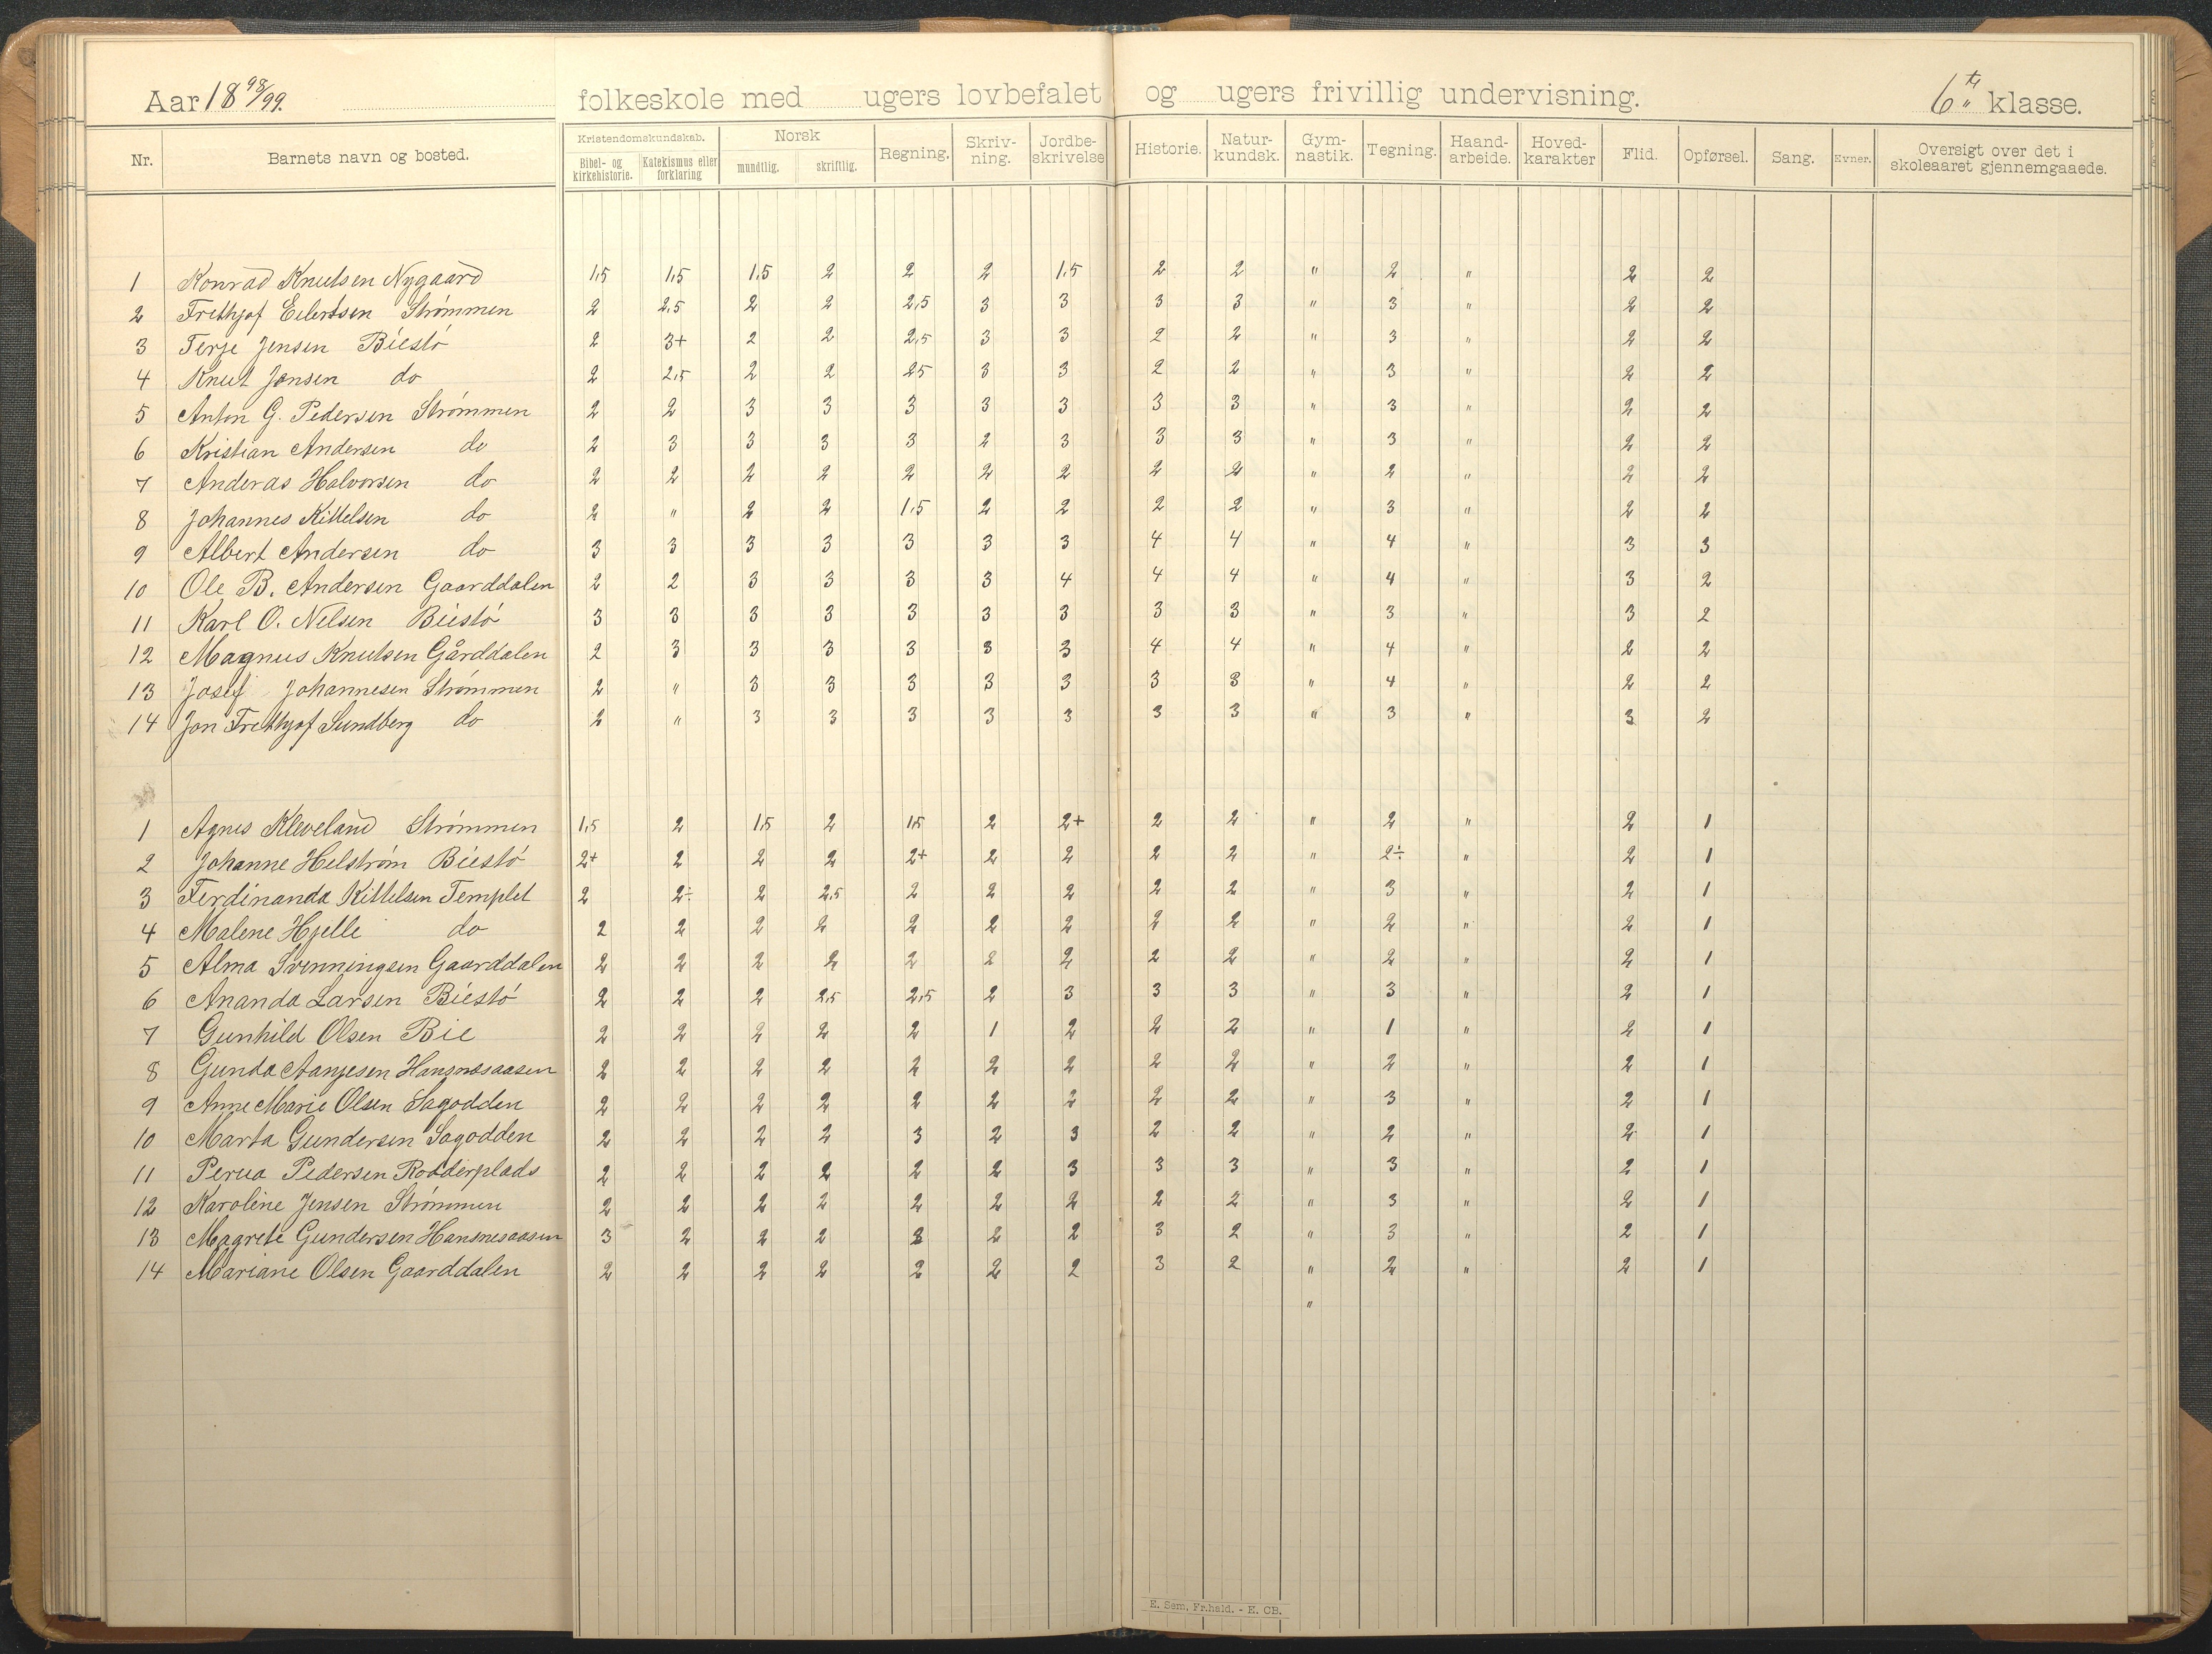 Aar 18 98/99. folkeskole med ugers lovbefalet og ugers frivillig undervisning. 6te klasse.
Nr. Barnets navn og bosted. Kristendomskundskab. Bibel- og kirkehistorie. Katekismus eller forklaring Norsk mundtlig. skriftlig. Regning. Skriv-ning. Jordbe-skrivelse Historie. Natur-kundsk. Gym-nastik. Tegning. Haand-arbeide. Hoved-karakter Flid. Opførsel. Sang. Evner. Oversigt over det i skoleaaret gjennemgaaede.
1 Konrad Knutsen Nygaard 1,5 1,5 1,5 2 2 2 1,5 2 2 " 2 " 2 2
2 Frithjof Eilertsen Strømmen 2 2,5 2 2 2,5 3 3 3 3 " 3 " 2 2
3 Terje Jensen Biestö 2 3+ 2 2 2,5 3 3 2 2 " 3 " 2 2
4 Knut Jensen do 2 2,5 2 2 25 3 3 2 2 " 3 " 2 2
5 Anton G. Pedersen Strømmen 2 2 3 3 3 3 3 3 3 " 3 " 2 2
6 Kristian Andersen do 2 3 3 3 3 2 3 3 3 " 3 " 2 2
7 Anderas Halvorsen do 2 2 2 2 2 2 2 2 2 " 2 " 2 2
8 Johannes Kittelsen do 2 " 2 2 1,5 2 2 2 2 " 3 " 2 2
9 Albert Andersen do 3 3 3 3 3 3 3 4 4 " 4 " 3 3
10 Ole B. Andersen Gaarddalen 2 2 3 3 3 3 4 4 4 " 4 " 3 2
11 Karl O. Nelsen Biestö 3 3 3 3 3 3 3 3 3 " 3 " 3 2
12 Magnus Knutsen Gårddalen 2 3 3 3 3 3 3 4 4 " 4 " 2 2
13 Josef Johannesen Strømmen 2 " 3 3 3 3 3 3 3 " 4 " 2 2
14 Jon Frithjof Sundberg do 2 " 3 3 3 3 3 3 3 " 3 " 3 2
1 Agnes Kleveland Strømmen 1,5 2 1,5 2 1,5 2 2+ 2 2 " 2 " 2 1
2 Johanne Helstrøm Biestö 2+ 2 2 2 2+ 2 2 2 2 " 2÷ " 2 1
3 Ferdinanda Kittelsen Templet 2 2÷ 2 2,5 2 2 2 2 2 " 3 " 2 1
4 Malene Hjelle do 2 2 2 2 2 2 2 2 2 " 2 " 2 1
5 Alma Svenningsen Gaarddalen 2 2 2 2 2 2 2 2 2 " 2 " 2 1
6 Ananda Larsen Biestö 2 2 2 2,5 2,5 2 3 3 3 " 3 " 2 1
7 Gunhild Olsen Bie 2 2 2 2 2 1 2 2 2 " 1 " 2 1
8 Gunda Aanjesen Hansnæsaasen 2 2 2 2 2 2 2 2 2 " 2 " 2 1
9 Anne Marie Olsen Sagodden 2 2 2 2 2 2 2 2 2 " 3 " 2 1
10 Marta Gundersen Sagodden 2 2 2 2 3 2 3 2 2 " 2 " 2 1
11 Perua Pedersen Rodderplads 2 2 2 2 2 2 3 3 3 " 3 " 2 1
12 Karoline Jensen Strømmen 2 2 2 2 2 2 2 2 2 " 3 " 2 1
13 Magrete Gundersen Hansnesaasen 3 2 2 2 2 2 2 3 2 " 3 " 2 1
14 Mariane Olsen Gaarddalen 2 2 2 2 2 2 2 3 2 " 2 " 2 1
"
E. Sem, Fr.hald. - E. CB.